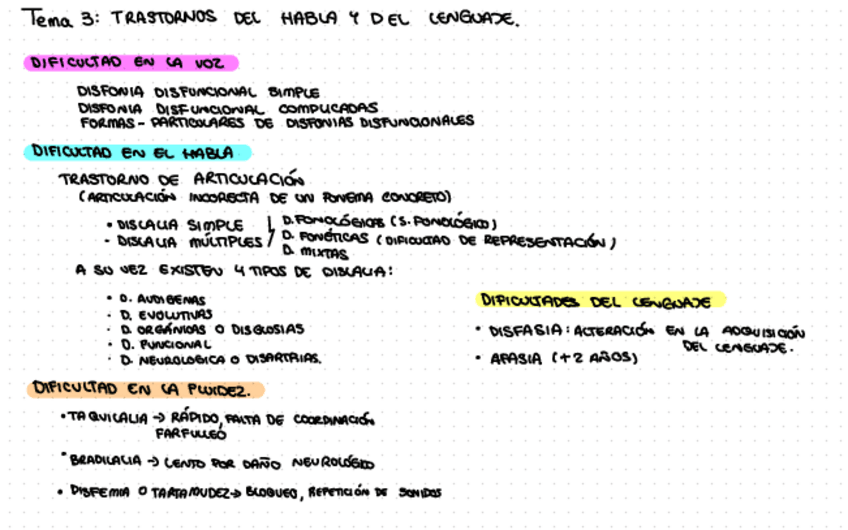 Tema 3: TRASTORNOS DEL HABLA Y DEL LENGUAJE.
DIFICULTAD EN LA VOZ
DISFONIA DISFUNCIONAL SIMPLE
DISFONIA DISFUNCIONAL COMPLICADAS
FORMAS - PARTICULARES DE DISFONIAS DISFUNCIONALES
DIFICULTAD EN EL HABLA
TRASTORNO DE ARTICULACIÓN
(ARTICULACIÓN INCORRECTA DE UN FONEMA CONCRETO)
• DISLALIA SIMPLE / D. FONOLÓGICAS (S. FONOLÓGICO)
- DISLALIA MÚLTIPLES / D. FONÉTICAS (DIFICULTAD DE REPRESENTACIÓN)
D. MIXTAS
A SU VEZ EXISTEN 4 TIPOS DE DISLALIA:
• D. AUDIGENAS
• D. EVOLUTIVAS
• D. ORGÁNICAS O DISGLOSIAS
• D. FUNCIONAL
• D. NEUROLOGICA O DISARTRIAS.
DIFICULTADES DEL LENGUAJE
• DISFASIA: ALTERACIÓN EN LA ADQUISICIÓN
DEL LENGUAJE.
• AFASIA (+2 AÑOS)
DIFICULTAD EN LA FLUIDEZ.
• TAQUILALIA → RÁPIDO, FALTA DE COORDINACIÓN
FARFULLEO
• BRADILALIA → LENTO POR DAÑO NEUROLÓGICO
• DISFEMIA O TARTAMUDEZ → BLOQUEO, REPETICIÓN DE SONIDOS